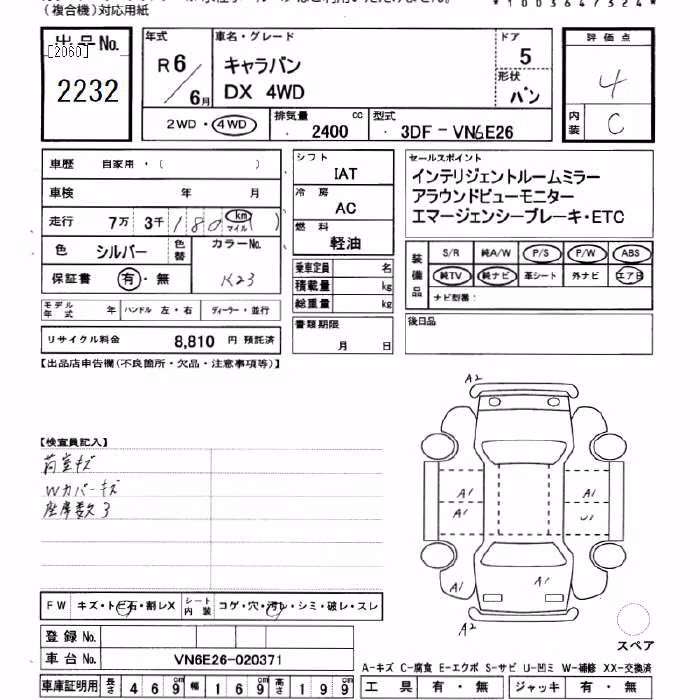 (複合機)対応用紙
*1003647324*
出品No.
[2060]
2232
年式
R6/6月
車名・グレード
キャラバン
DX 4WD
ドア
5
形状
バン
評価点
4
内装
C
2WD・4WD
排気量
2400 cc
型式
3DF-VN6E26
車歴 自家用・( )
車検 年 月
走行 7万 3千 180 (km マイル)
色 シルバー 色替
カラーNo.
K23
保証書 有・無
モデル年式 年 ハンドル 左・右 ディーラー・並行
リサイクル料金 8,810 円 預託済
シフト
IAT
冷房
AC
燃料
軽油
乗車定員 名
積載量 kg
総重量 kg
書類期限
月 日
セールスポイント
インテリジェントルームミラー
アラウンドビューモニター
エマージェンシーブレーキ・ETC
装備品
S/R 純A/W P/S P/W ABS
純TV 純ナビ 革シート 外ナビ エアB
ナビ型番:
後日品
【出品店申告欄(不良箇所・欠品・注意事項等)】
【検査員記入】
荷室キズ
Wカバーキズ
座席数3
A2
A1
A1
A1
U1
A1
A1
A2
スペア
FW キズ・トビ石・割レX
シート内装 コゲ・穴・汚レ・シミ・破レ・スレ
登録No.
車台No. VN6E26-020371
車庫証明用 長さ 469cm 幅 169cm 高さ 199cm
A-キズ C-腐食 E-エクボ S-サビ U-凹ミ W-補修 XX-交換済
工具 有・無 ジャッキ 有・無